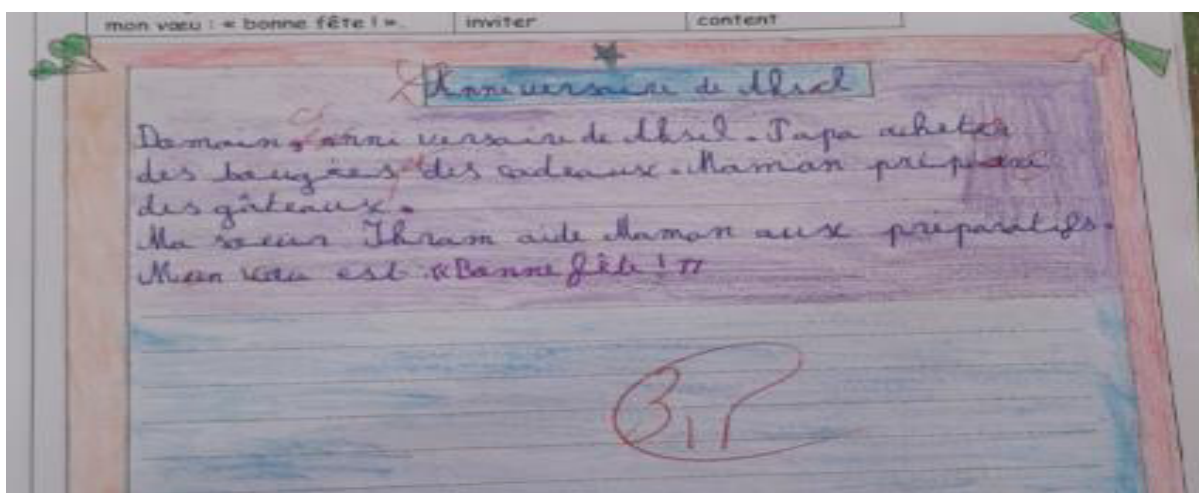 mon vœu : « bonne fête ! ». inviter content
Anniversaire de Aksel
Demain, anniversaire de Aksel. Papa acheter
des bougies des cadeaux. Maman prépare
des gâteaux.
Ma sœur Ikram aide Maman aux préparatifs.
Mon vœu est «Bonne fête !»